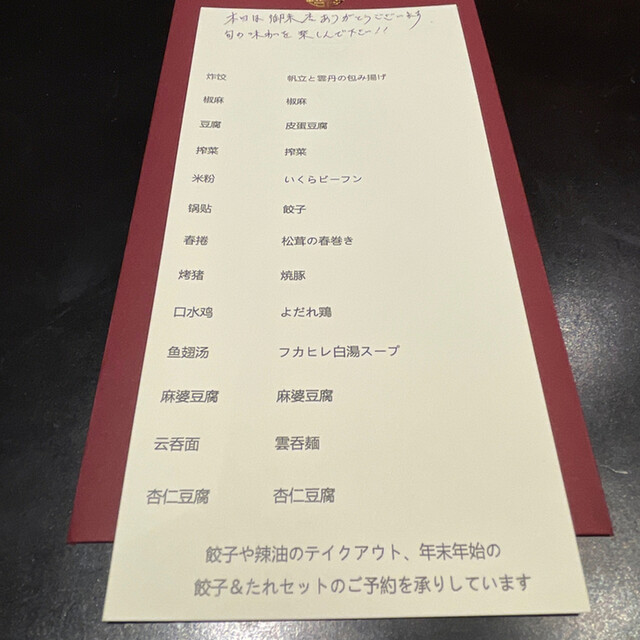 本日は御来店ありがとうございます。
旬の味わを楽しんで下さい!!
炸饺 帆立と雲丹の包み揚げ
椒麻 椒麻
豆腐 皮蛋豆腐
搾菜 搾菜
米粉 いくらビーフン
锅贴 餃子
春捲 松茸の春巻き
烤猪 焼豚
口水鸡 よだれ鶏
鱼翅汤 フカヒレ白湯スープ
麻婆豆腐 麻婆豆腐
云呑面 雲呑麺
杏仁豆腐 杏仁豆腐
餃子や辣油のテイクアウト、年末年始の
餃子&たれセットのご予約を承りしています